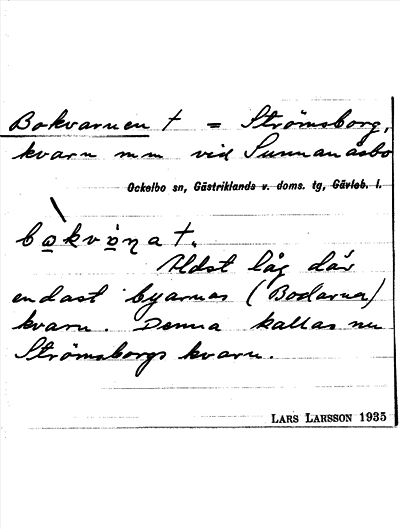 Bokvarnen † = Strömsborg,
kvarn mm vid Sunnanåsbo
Ockelbo sn, Gästriklands v. doms. tg, Gävleb. l.
bo̲kvo̲ṇa †.
Äldst låg där
endast byarnas (Bodarna)
kvarn. Denna kallas nu
Strömsborgs kvarn.
LARS LARSSON 1935